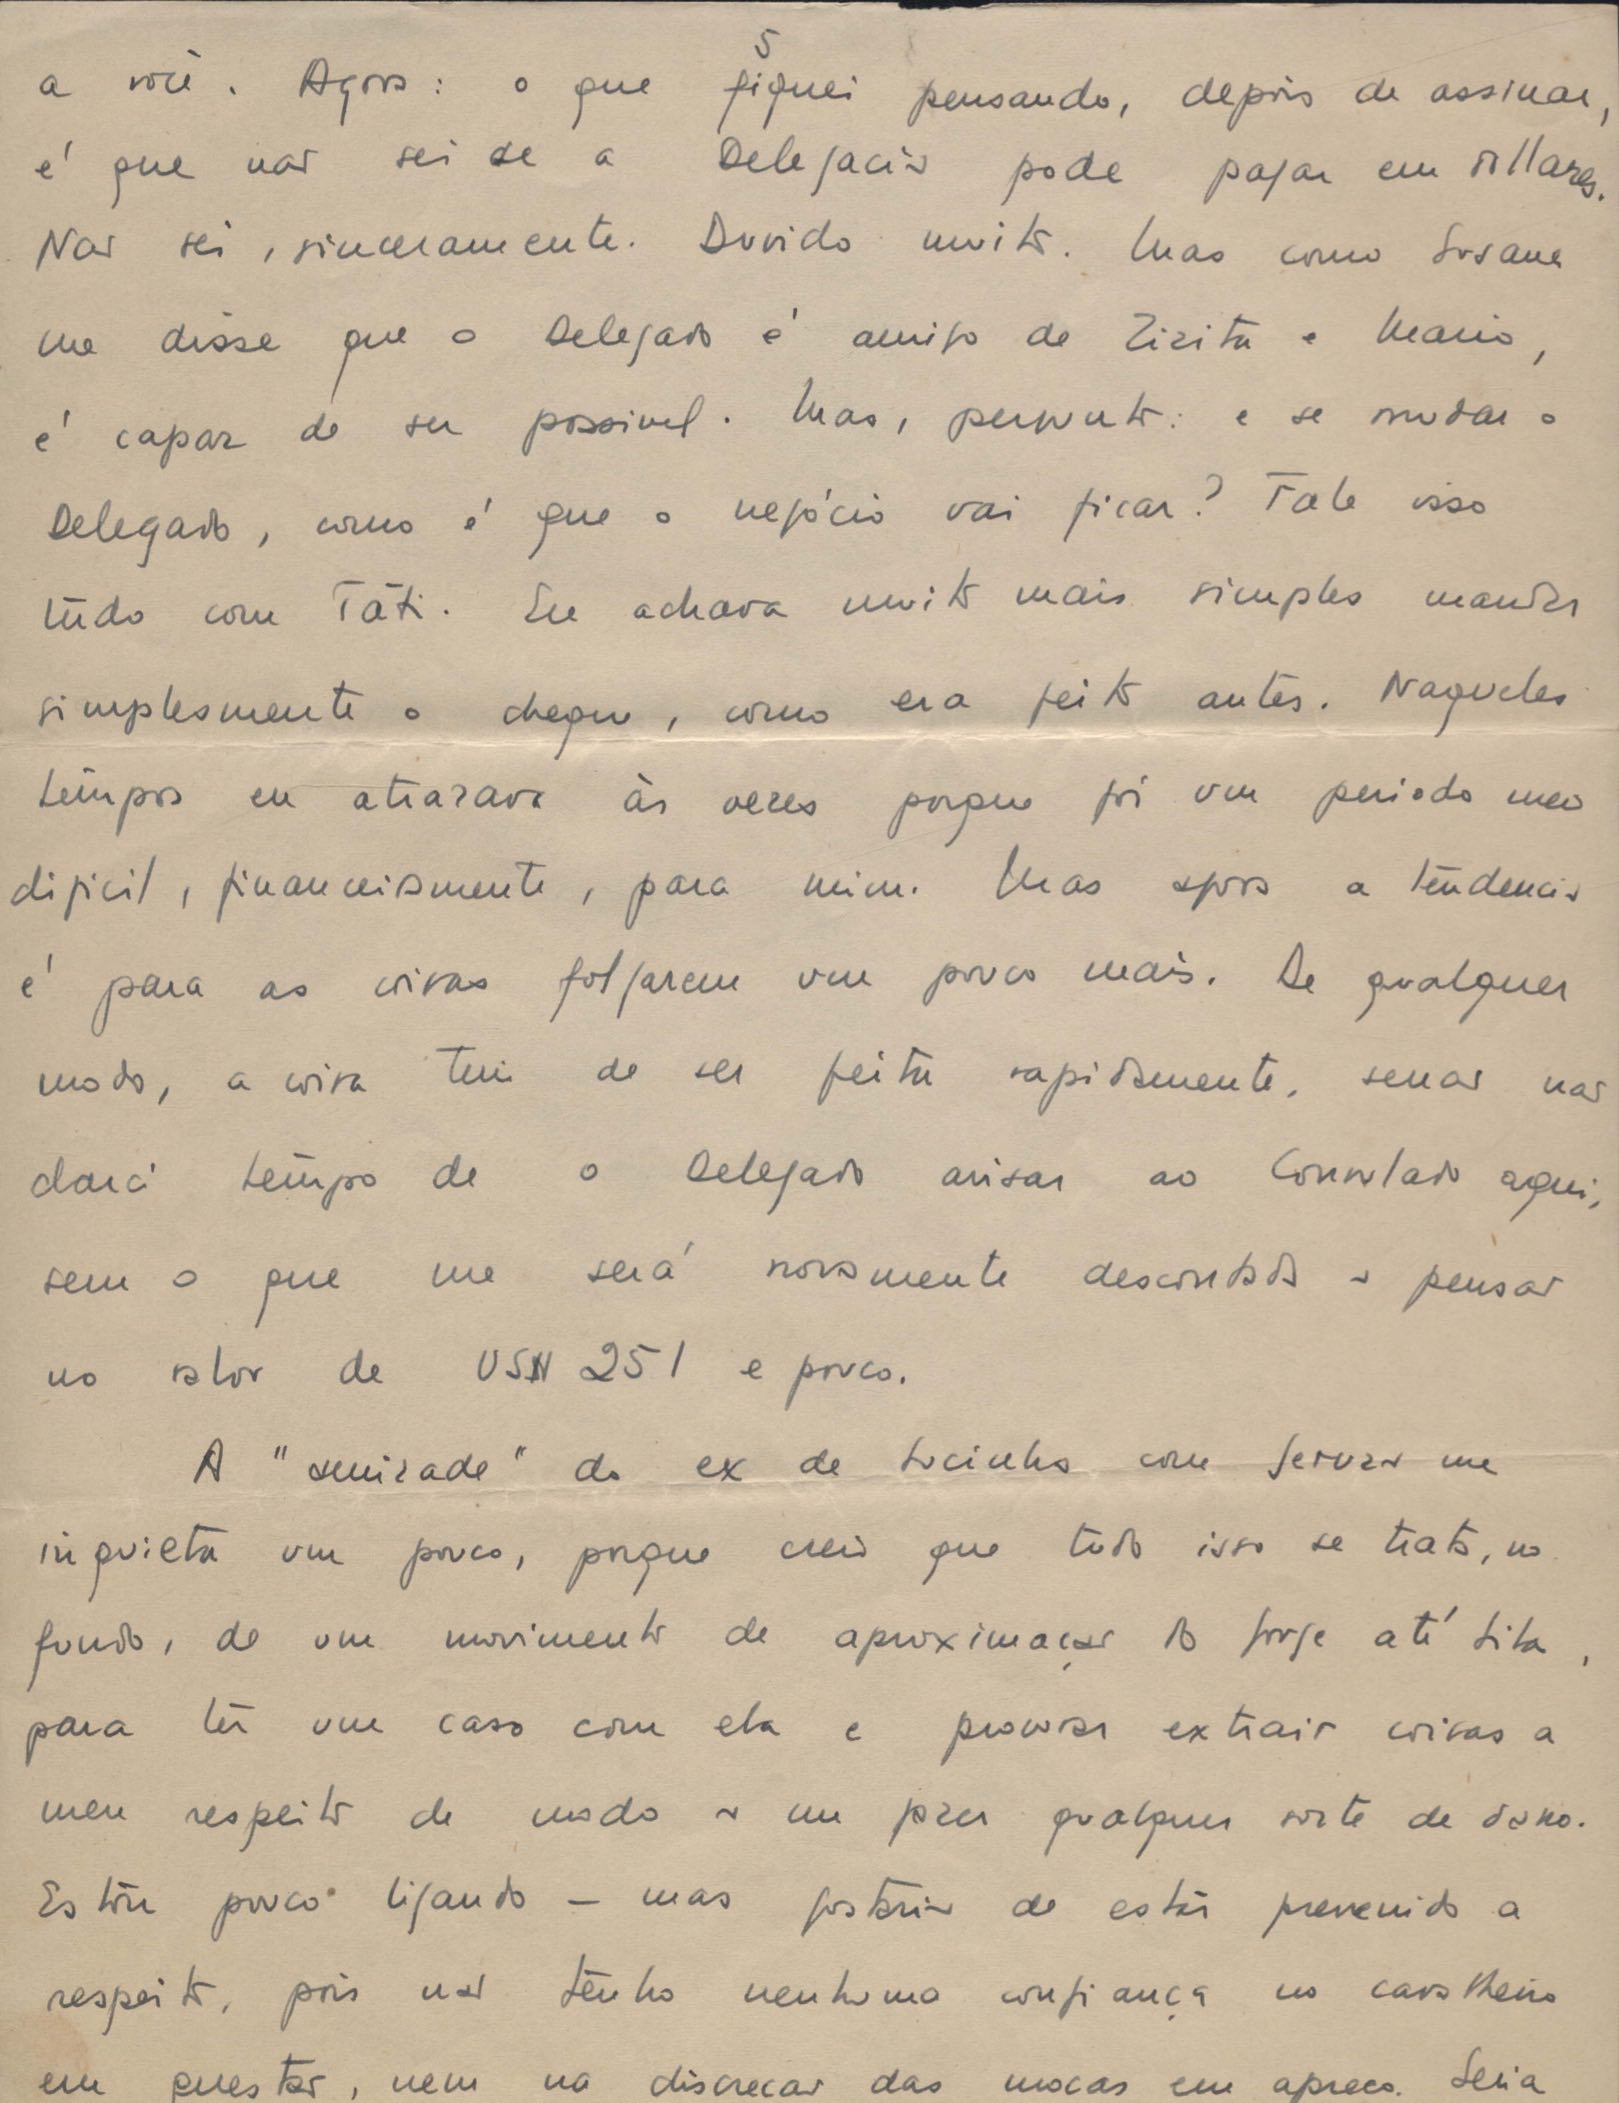 5
a você. Agora: o que fiquei pensando, depois de assinar,
é que não sei se a Delegacia pode pagar em dollares.
Não sei, sinceramente. Duvido muito. Mas como Susana
me disse que o Delegado é amigo de Zizita e Mario,
é capaz de ser possivel. Mas, pergunto: e se mudar o
Delegado, como é que o negócio vai ficar? Fale isso
tudo com Táti. Eu achava muito mais simples mandar
simplesmente o cheque, como era feito antes. Naqueles
tempos eu atrazava às vezes porque foi um periodo meio
dificil, financeiramente, para mim. Mas agora a tendencia
é para as coisas folgarem um pouco mais. De qualquer
modo, a coisa tem de ser feita rapidamente, senão não
dará tempo de o Delegado avisar ao Consulado aqui,
sem o que me será novamente descontada a pensão
no valor de US$ 251 e pouco.
A "amizade" do ex de Lucinha com me
inquieta um pouco, porque creio que tudo isso se trata, no
fundo, de um movimento de aproximação do Jorge até Lila,
para ter um caso com ela e procurar extrair coisas a
meu respeito de modo a me fazer qualquer sorte de dano.
Estou pouco ligando — mas gostaria de estar prevenido a
respeito, pois não tenho nenhuma confiança no cavalheiro
em questão, nem na discrecão das mocas em apreco. Seria